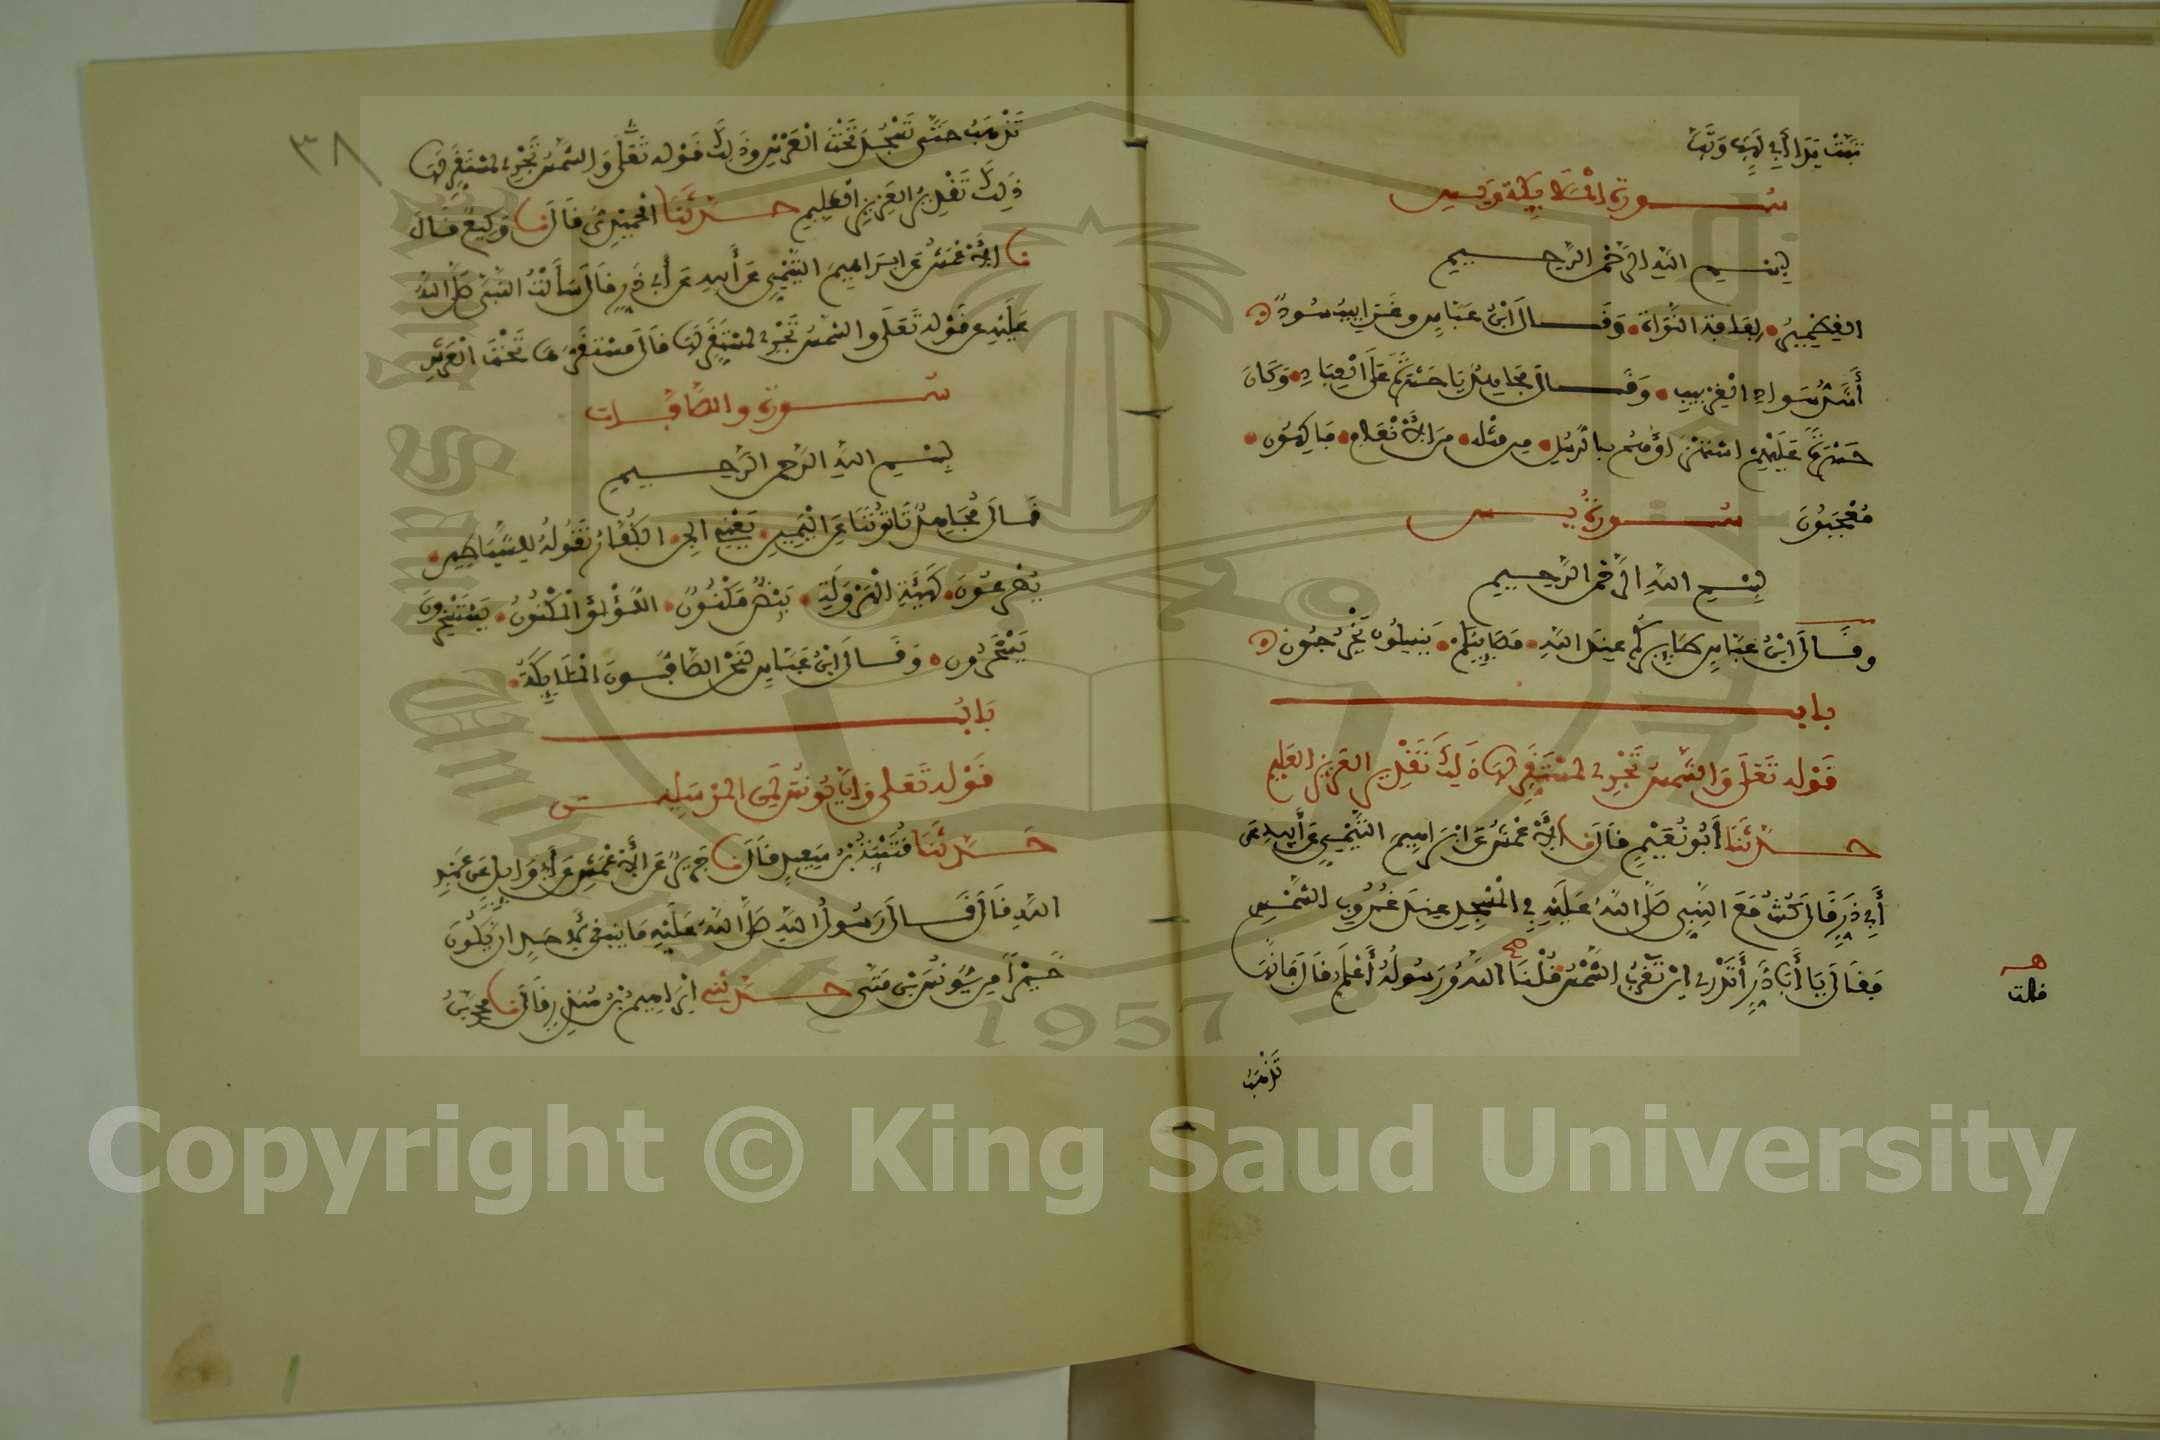 تَبَّتْ يَدَا أَبِي لَهَبٍ وَتَبَّ
سُورة المَلَائِكة ويس
بِسْمِ اللَّهِ الرَّحْمَنِ الرَّحِيمِ
القِطْمِيرُ لِفَافَة النَّوَاة وَقَالَ ابْنُ عَبَّاسٍ وغَرَابِيبُ سُودٌ
أَشَدُّ سَوَادِ الْغِرْبِيبِ وَقَالَ مُجَاهِدٌ يَا حَسْرَةً عَلَى الْعِبَادِ وَكَانَ
حَسْرَةً عَلَيْهِمْ اسْتَهْزَاؤُهُمْ بِالرُّسُلِ مِن مِثْلِه مِنَ الأَنْعَامِ فَاكِهُون
مُعْجَبُونَ سُورَةُ يس
بِسْمِ اللَّهِ الرَّحْمَنِ الرَّحِيمِ
وقَالَ ابْنُ عَبَّاسٍ طَائِرُكُمْ عِنْدَ اللَّهِ مَصَائِبُكُمْ يَنسِلُون يَخْرُجُون
باب
قَوْله تَعَلَى وَالشَّمْسُ تَجْرِي لِمُسْتَقَرٍّ لَهَا ذَلِكَ تَقْدِيرُ العَزِيزِ العَلِيمِ
حَدَّثَنَا أَبُو نُعَيْمٍ قَالَ نا الأَعْمَشُ عَنْ إِبْرَاهِيمَ التَّيْمِيِّ عَنْ أَبِيهِ عَنْ
أَبِي ذَرٍّ قَالَ كُنْتُ مَعَ النَّبِيِّ صَلَّى اللَّهُ عَلَيْهِ فِي الْمَسْجِدِ عِنْدَ غُرُوبِ الشَّمْسِ
فَقَالَ يَا أَبَا ذَرٍّ أَتَدْرِي أَيْنَ تَغْرُبُ الشَّمْسُ قُلْنَا اللَّهُ وَرَسُولُهُ أَعْلَمُ قَالَ فَإِنَّهَا
هـ
قلت
تَذْهَبُ
٣٨
تَذْهَبُ حَتَّى تَسْجُدَ تَحْتَ الْعَرْشِ وذَلِكَ قَوْله تَعَلَى وَالشَّمْسُ تَجْرِي لِمُسْتَقَرٍّ لَهَا
ذَلِكَ تَقْدِيرُ العَزِيزِ الْعَلِيمِ حَدَّثَنَا الْحُمَيْدِيُّ قَالَ نا وَكِيعٌ قَالَ
نا الأَعْمَشُ عَن إِبْرَاهِيمَ التَّيْمِيِّ عَنْ أَبِيهِ عَنْ أَبِي ذَرٍّ قَالَ سَأَلْتُ النَّبِيَّ صَلَّى اللَّهُ
عَلَيْهِ عن قَوْله تَعَلَى والشَّمْسُ تَجْرِي لِمُسْتَقَرٍّ لَهَا قَالَ مُسْتَقَرُّهَا تَحْتَ الْعَرْشِ
سُورة والصَّافَّات
بِسْمِ اللَّهِ الرَّحْمَنِ الرَّحِيمِ
قَالَ مُجَاهِدٌ تَاتُونَنَا عَنِ الْيَمِينِ يَعْنِي الجِنَّ الكُفَّارُ تَقُولُهُ لِلشَّيَاطِينِ
يُهْرَعُونَ كَهَيْئَةِ الْهَرْوَلَةِ بَيْضٌ مَكْنُونٌ اللُّؤْلُؤُ الْمَكْنُونُ يَسْتَسْخِرُونَ
يَسْخَرُونَ وَقَالَ ابْنُ عَبَّاسٍ لَنَحْنُ الصَّافُّونَ الْمَلَائِكَةُ
بَابُ
قَوْله تَعَلَى وَإِنَّ يُونُسَ لَمِنَ الْمُرْسَلِينَ
حَدَّثَنَا قُتَيْبَةُ بْنُ سَعِيدٍ قَالَ نا جَرِيرٌ عَنِ الأَعْمَشِ عَنْ أَبِي وَائِلٍ عَنْ عَبْدِ
اللَّهِ قَالَ قَالَ رَسُولُ اللَّهِ صَلَّى اللَّهُ عَلَيْهِ مَا يَنبَغِي لِأَحَدٍ أَنْ يَكُونَ
خَيْرًا مِنْ يُونُسَ بْنِ مَتَّى حَدَّثَنِي إِبْرَاهِيمُ بْنُ مُنْذِرٍ قَالَ نا مُحَمَّدُ بْنُ
Copyright © King Saud University
1957